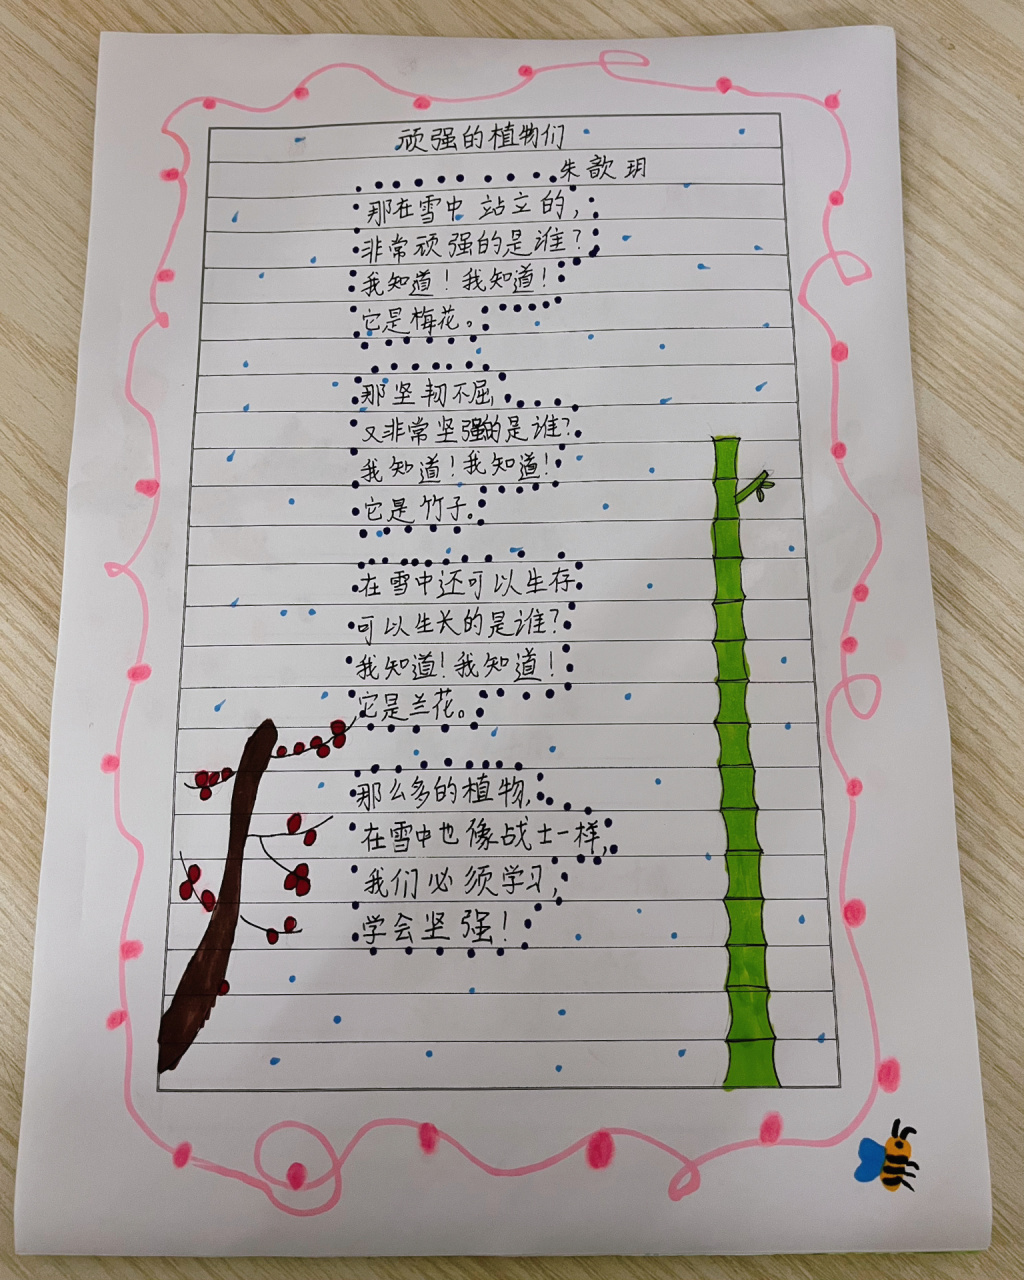 顽强的植物们
朱歆玥
那在雪中站立的，
非常顽强的是谁？
我知道！我知道！
它是梅花。
那坚韧不屈，
又非常坚强的是谁？
我知道！我知道！
它是竹子。
在雪中还可以生存
可以生长的是谁？
我知道！我知道！
它是兰花。
那么多的植物，
在雪中也像战士一样，
我们必须学习，
学会坚强！